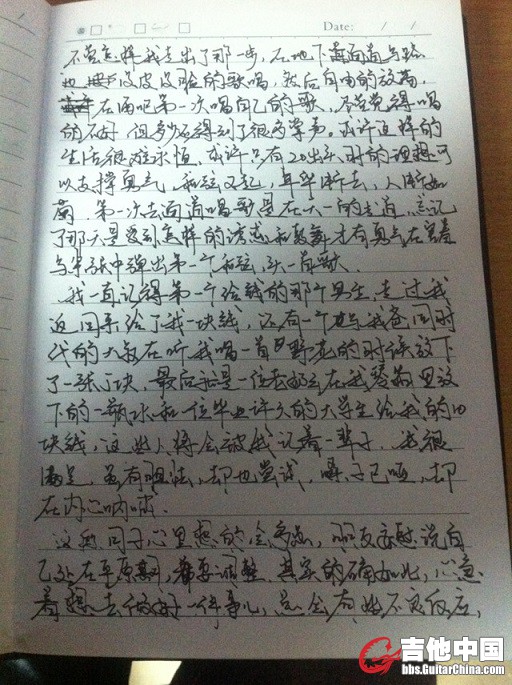 Date: / /
不管怎样我走出了那一步，在地下通道与路
没皮没脸的歌唱，然后自由的放荡，
在酒吧第一次唱自己的歌，尽管觉得唱
的不好，但多少得到了很多掌声。或许这样的
生活很难永恒，或许只有20出头时的理想可
以支撑勇气，和弦又起，年华渐去，人渐如
菊。第一次去通道唱歌是在大一的
了那天是受到怎样的诱惑和鼓舞才有勇气在
中弹出第一个和弦，头一首歌。
我一直记得第一个给钱的那个男生，走过我
返回来给了我一块钱，还有一个与我爸同时
代的大叔在听我唱一首野花的时候放下
了一张10块，最后就是一位老奶奶在我琴箱里放
下的一瓶水和一位毕业许久的大学生给我的10
块钱，这些人将会被我记着一辈子。我很
满足，虽有阻法，却也尝试，嗓子已哑，却
在内心呐喊。
这段日子心里想的会多些，朋友说自
己处在平原期，需要调整，其实的确如此，心急
着想去做好一件事儿，总会有些不良反应，
吉他中国
bbs.GuitarChina.com